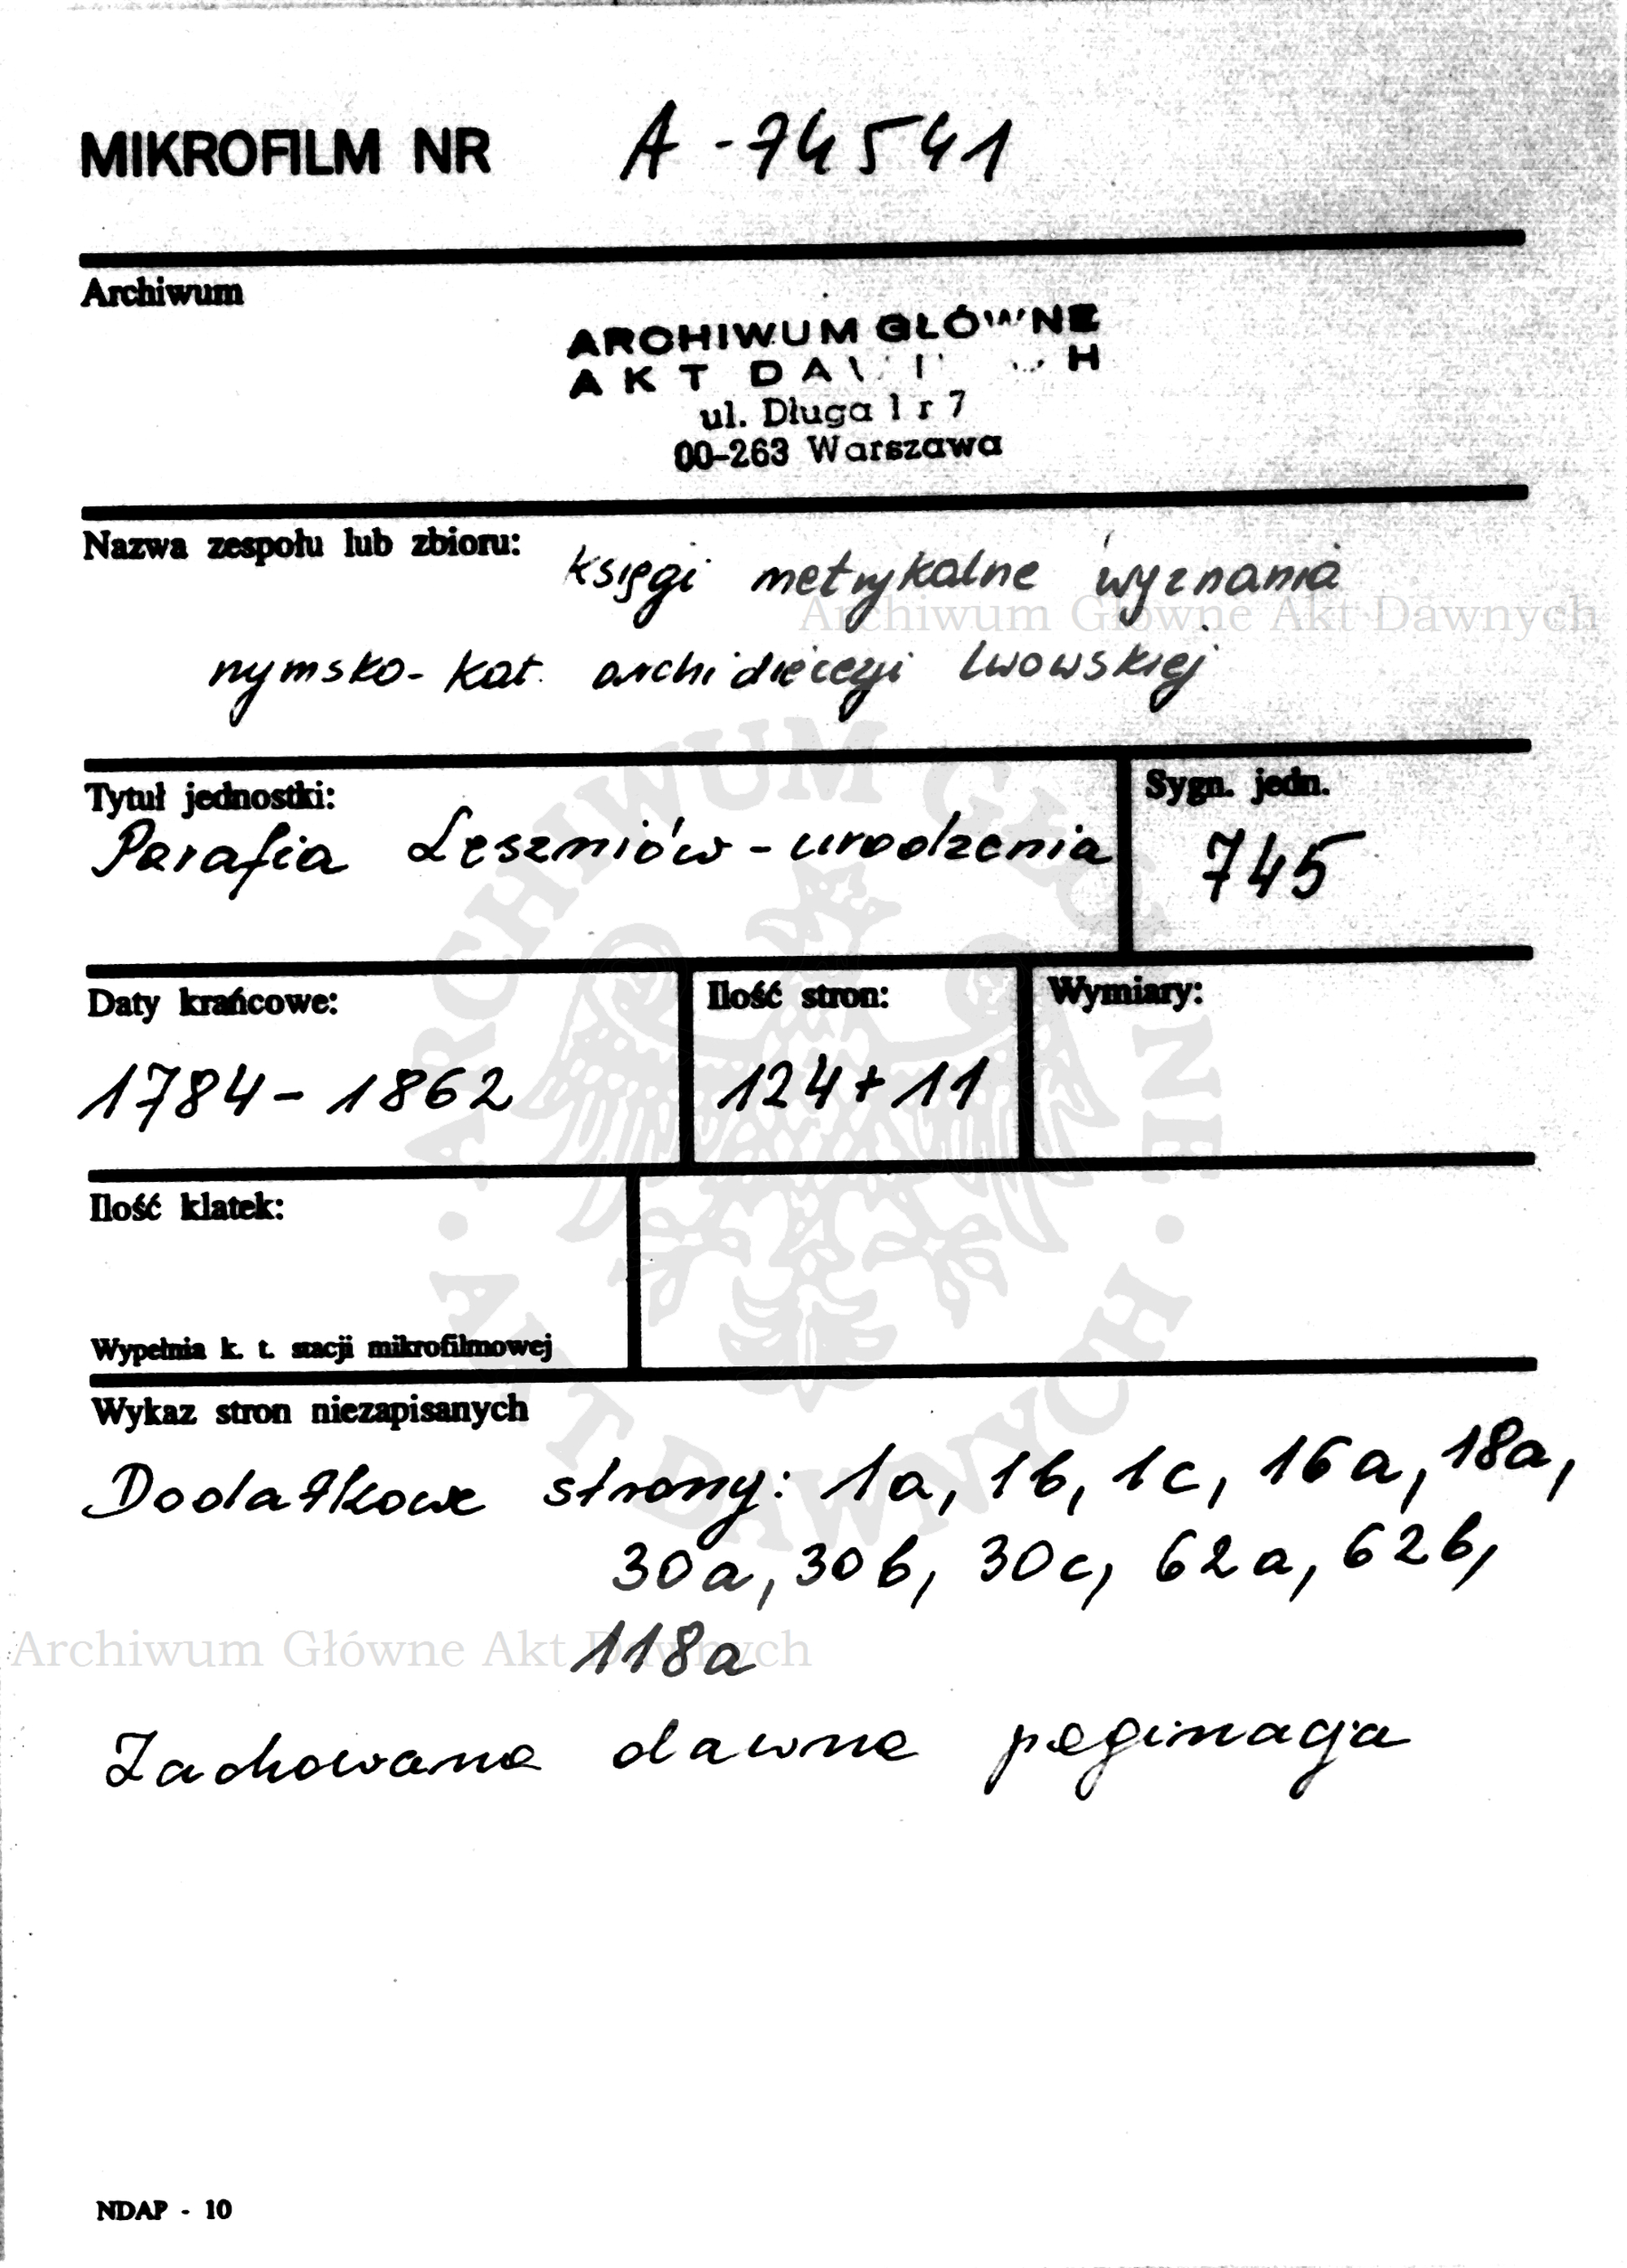 MIKROFILM NR A-74541
Archiwum
ARCHIWUM GŁÓWNE
AKT DA H
ul. Długa 7
00-263 Warszawa
Nazwa zespołu lub zbioru: Księgi metrykalne wyznania
Archiwum Główne Akt Dawnych
rymsko-kat. archidiecezji Lwowskiej
Tytuł jednostki:
Parafia Leszniów - urodzenia
Sygn. jedn.
745
Daty krańcowe:
1784 - 1862
Ilość stron:
124 + 11
Wymiary:
Ilość klatek:
Wypełnia k. t. stacji mikrofilmowej
ARCHIWUM GŁÓWNE · AKT DAWNYCH ·
Wykaz stron niezapisanych
Dodatkowe strony: 1a, 1b, 1c, 16a, 18a,
30a, 30b, 30c, 62a, 62b,
118a
Archiwum Główne Akt Dawnych
Zachowana dawna paginacja
NDAP - 10